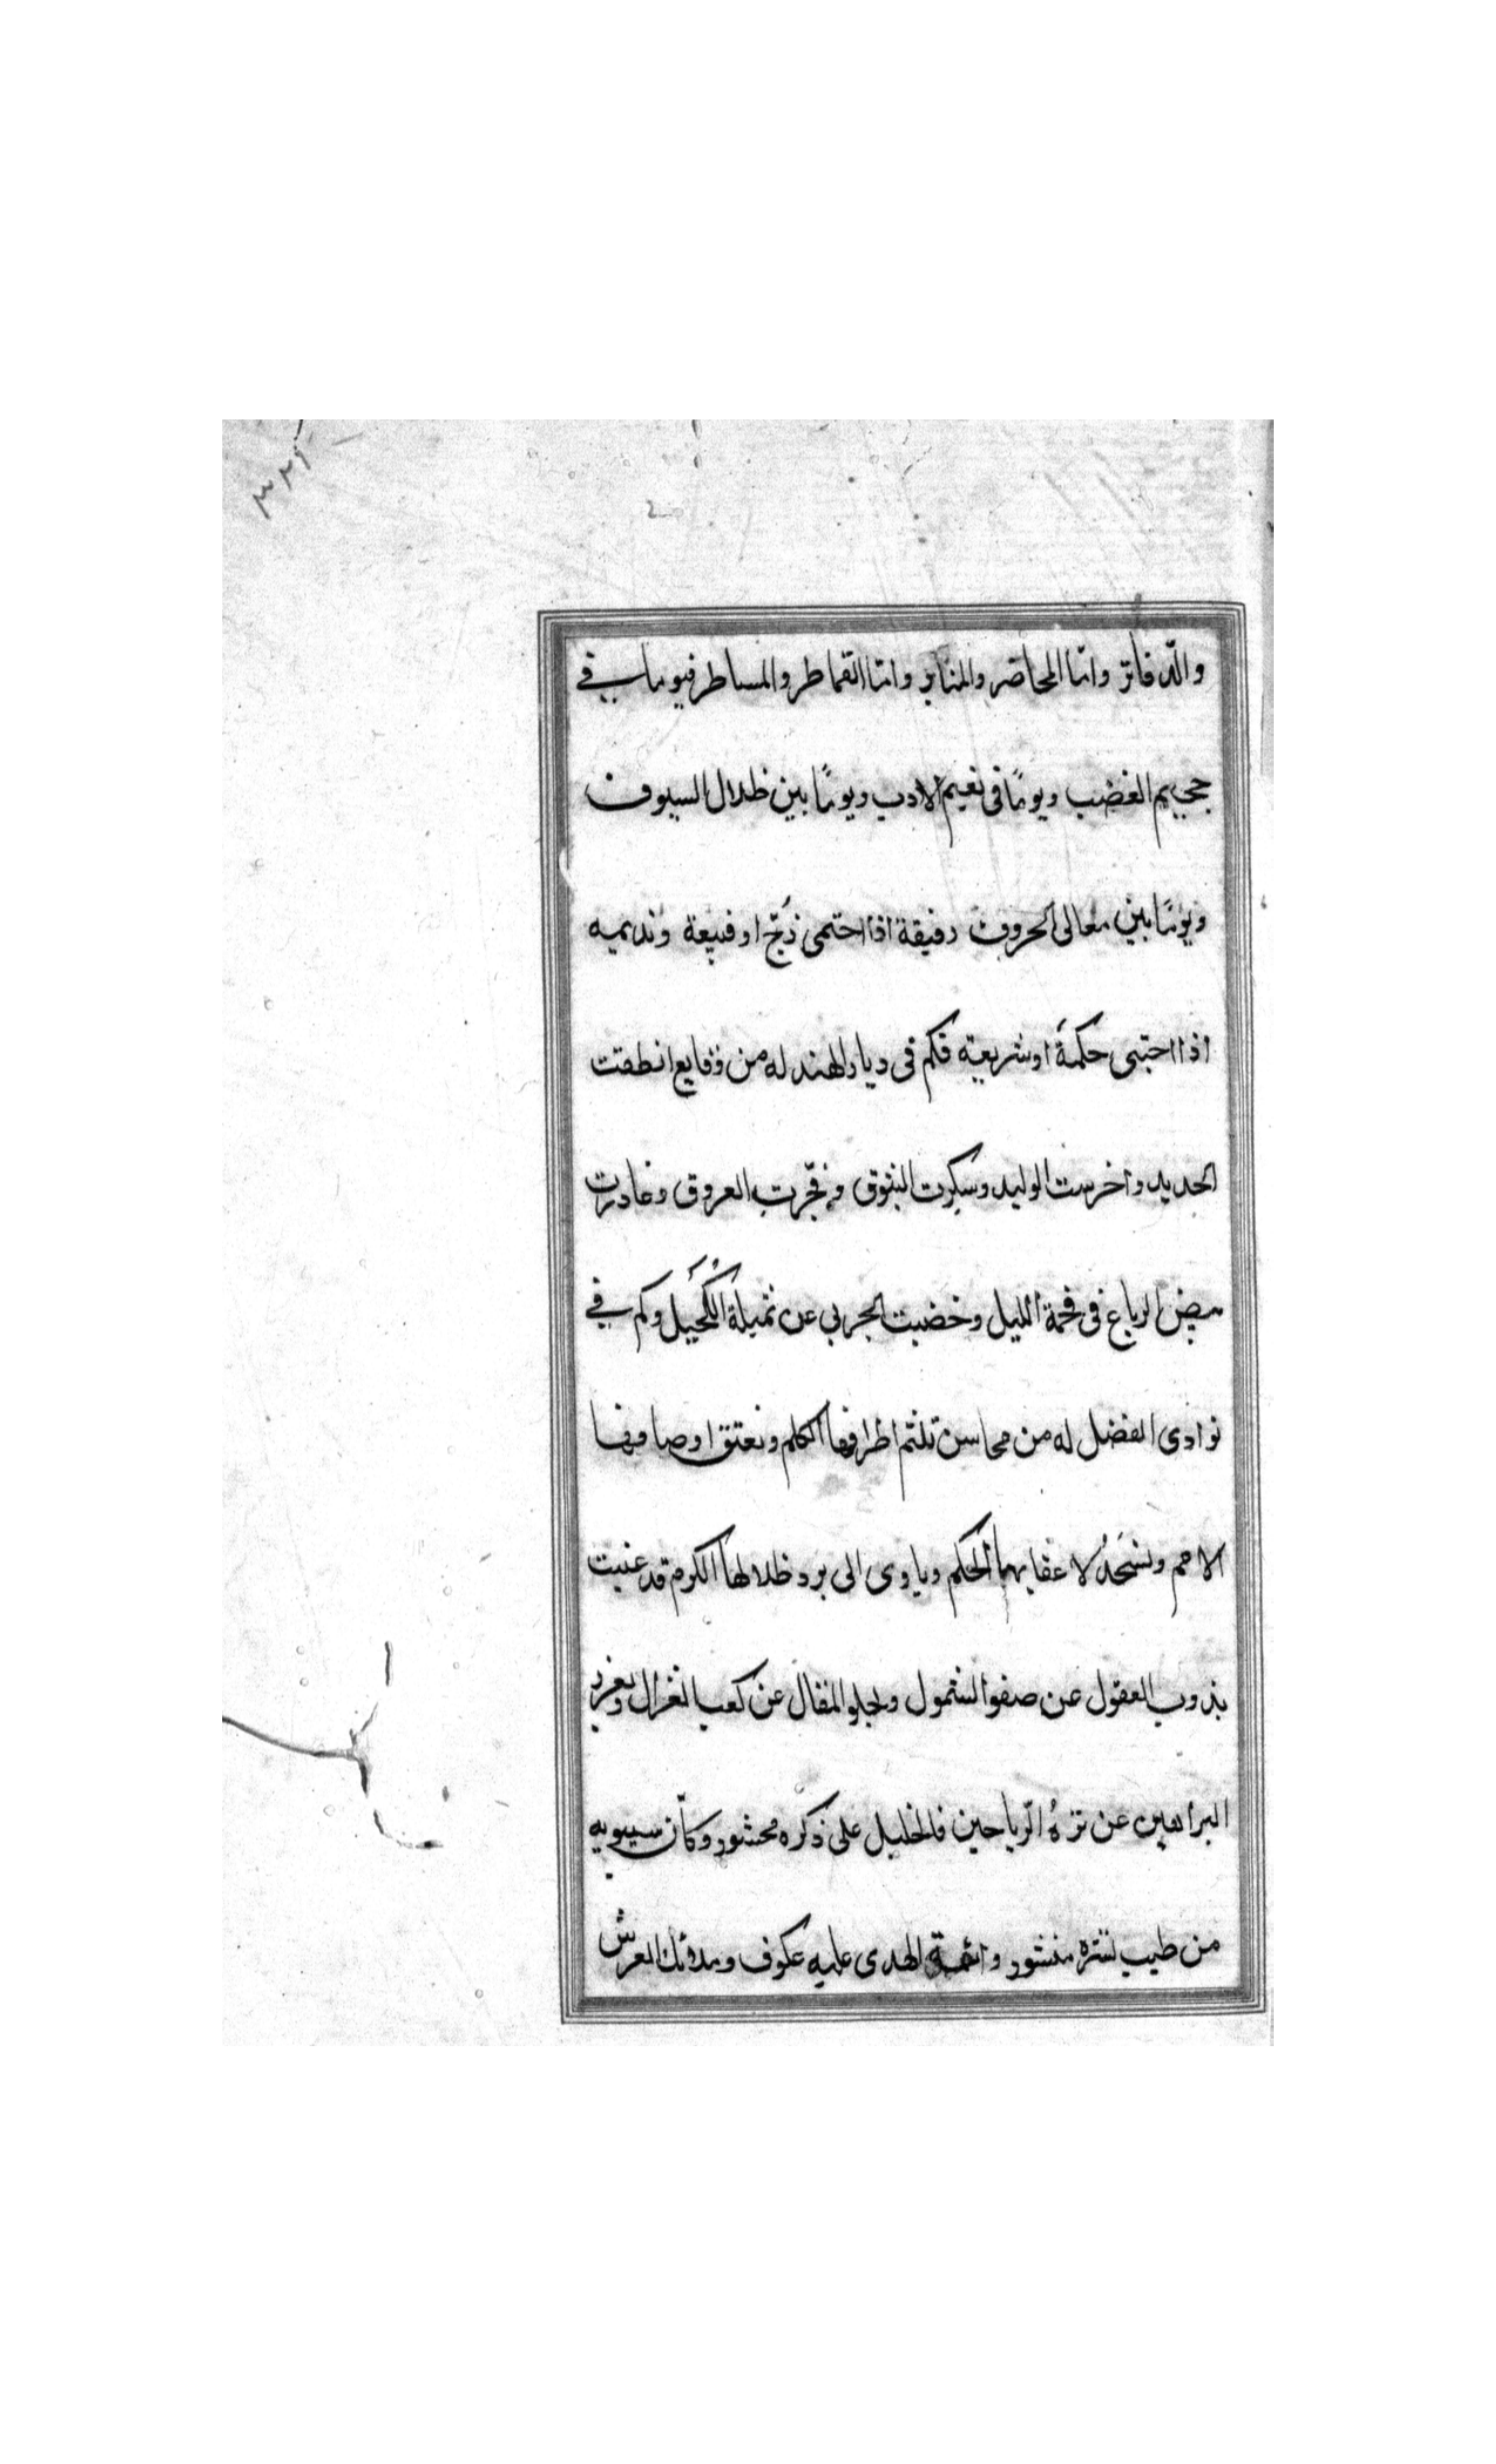 ٣٢٩
والدّفاتر وامّا المحاصر والمنابر وامّا القماطر والمساطر فيوما في
جحيم الغضب ويومًا فى نعيم الادب ويومًا بين ظلال السيوف
ويومًا بين معالى الحروف رفيقة اذا احتمى زُجّ او قبيعة ونديمه
اذا احتبى حكمةً اوشريعة فكم فى ديار الهند له من وقايع انطقت
الحديد واخرست الوليد وسكرت البثوق وفجّرت العروق وغادرت
بيض الرباع فى فحمة الليل وخضبت الجربى عن ثميلة الكُحَيل وكم في
نوادى الفضل له من محاسن تلثم اطرافها الكلم وتعتنق اوصافها
الامم وتسجُد لاعقابها الحكم وياوى الى برد ظلالها الكرم قد غنيت
بذوب العقول عن صفو الشمول وبجلو المقال عن كعب الغزال وبغرر
البراهين عن نزه الرّياحين فالخليل على ذكره محشور وكأن سيبويه
من طيب نشره منشور وائمة الهدى عليه عكوف وملائك العرش